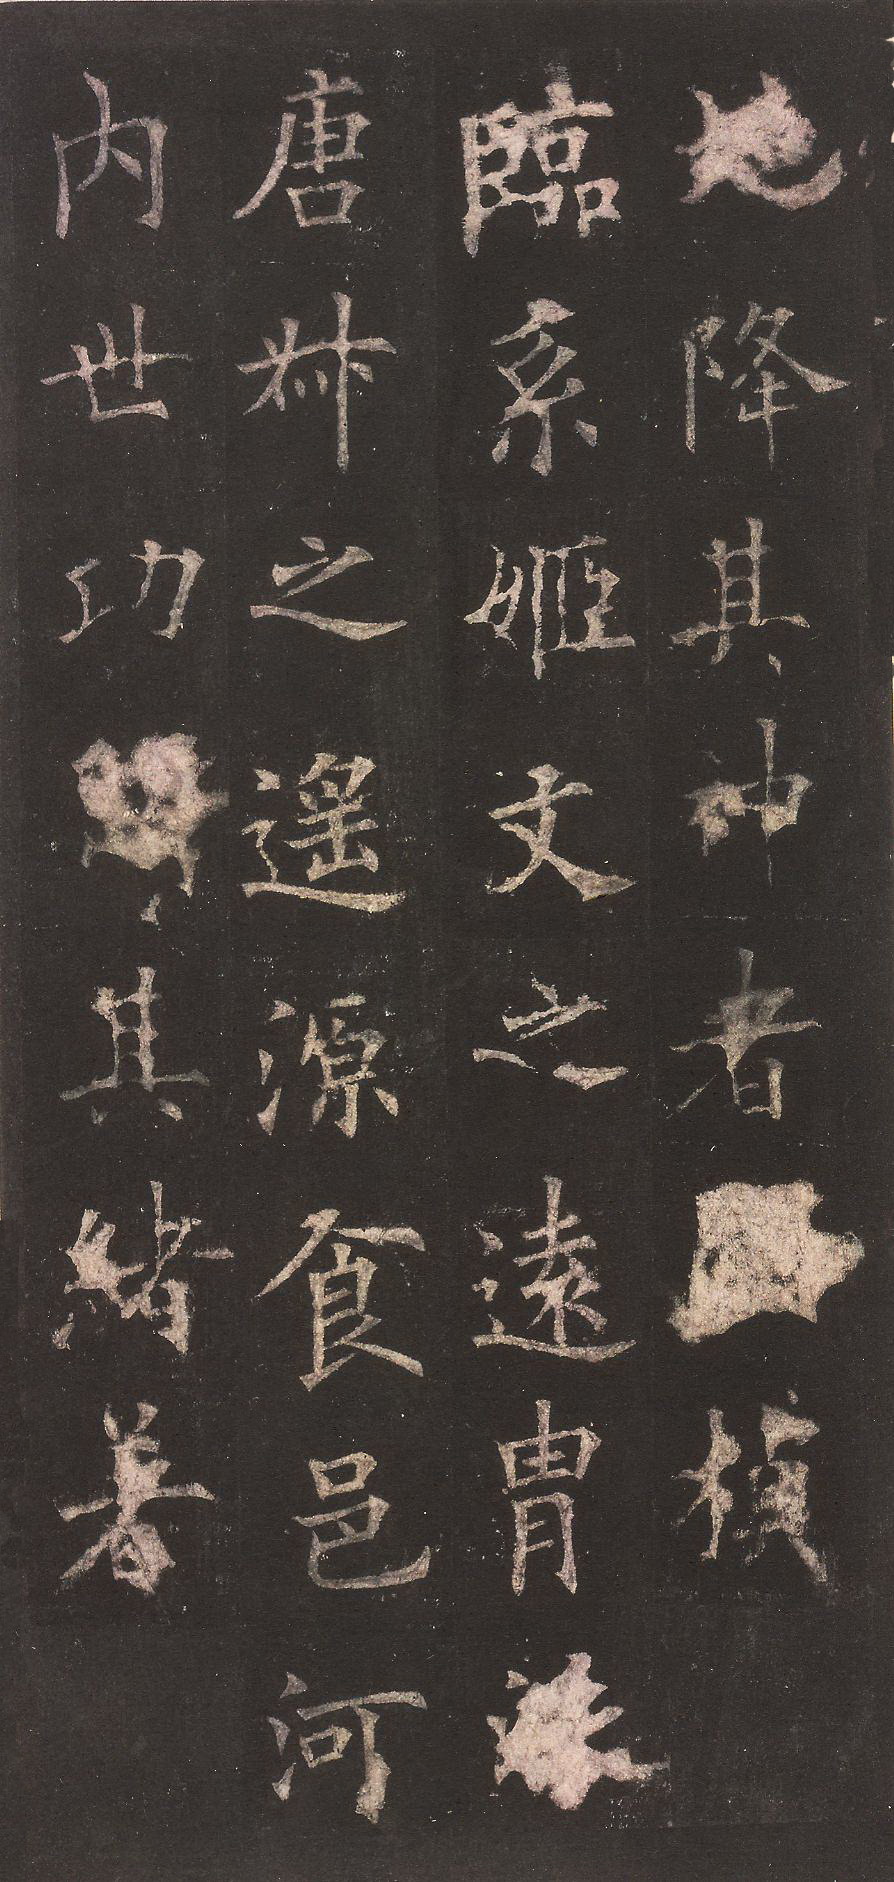 降其神者楨
臨系姬文之遠胄
唐叔之遙源食邑河
內世功其緒著